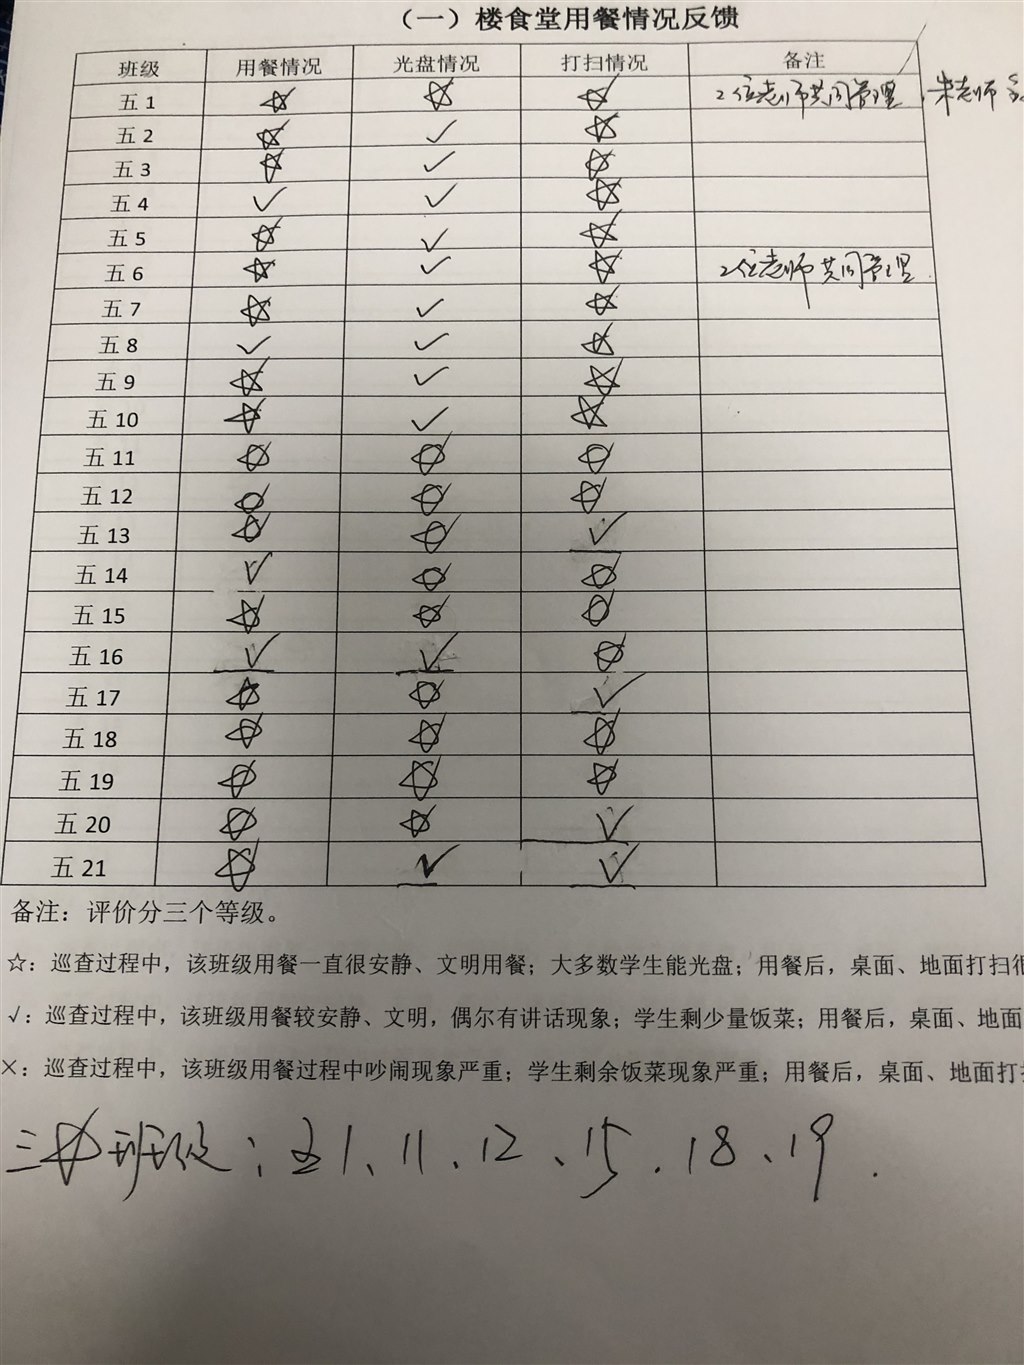 （一）楼食堂用餐情况反馈
班级 用餐情况 光盘情况 打扫情况 备注
五 1 ☆ ☆ ☆ 2位老师共同管理，朱老师
五 2 ☆ ✓ ☆
五 3 ☆ ✓ ☆
五 4 ✓ ✓ ☆
五 5 ☆ ✓ ☆
五 6 ☆ ✓ ☆ 2位老师共同管理.
五 7 ☆ ✓ ☆
五 8 ✓ ✓ ☆
五 9 ☆ ✓ ☆
五 10 ☆ ✓ ☆
五 11 ☆ ☆ ☆
五 12 ☆ ☆ ☆
五 13 ☆ ☆ ✓
五 14 ✓ ☆ ☆
五 15 ☆ ☆ ☆
五 16 ✓ ✓ ☆
五 17 ☆ ☆ ✓
五 18 ☆ ☆ ☆
五 19 ☆ ☆ ☆
五 20 ☆ ☆ ✓
五 21 ☆ ✓ ✓
备注：评价分三个等级。
☆：巡查过程中，该班级用餐一直很安静、文明用餐；大多数学生能光盘；用餐后，桌面、地面打扫很
√：巡查过程中，该班级用餐较安静、文明，偶尔有讲话现象；学生剩少量饭菜；用餐后，桌面、地面
×：巡查过程中，该班级用餐过程中吵闹现象严重；学生剩余饭菜现象严重；用餐后，桌面、地面打扫
三☆班级：五1、11、12、15、18、19.